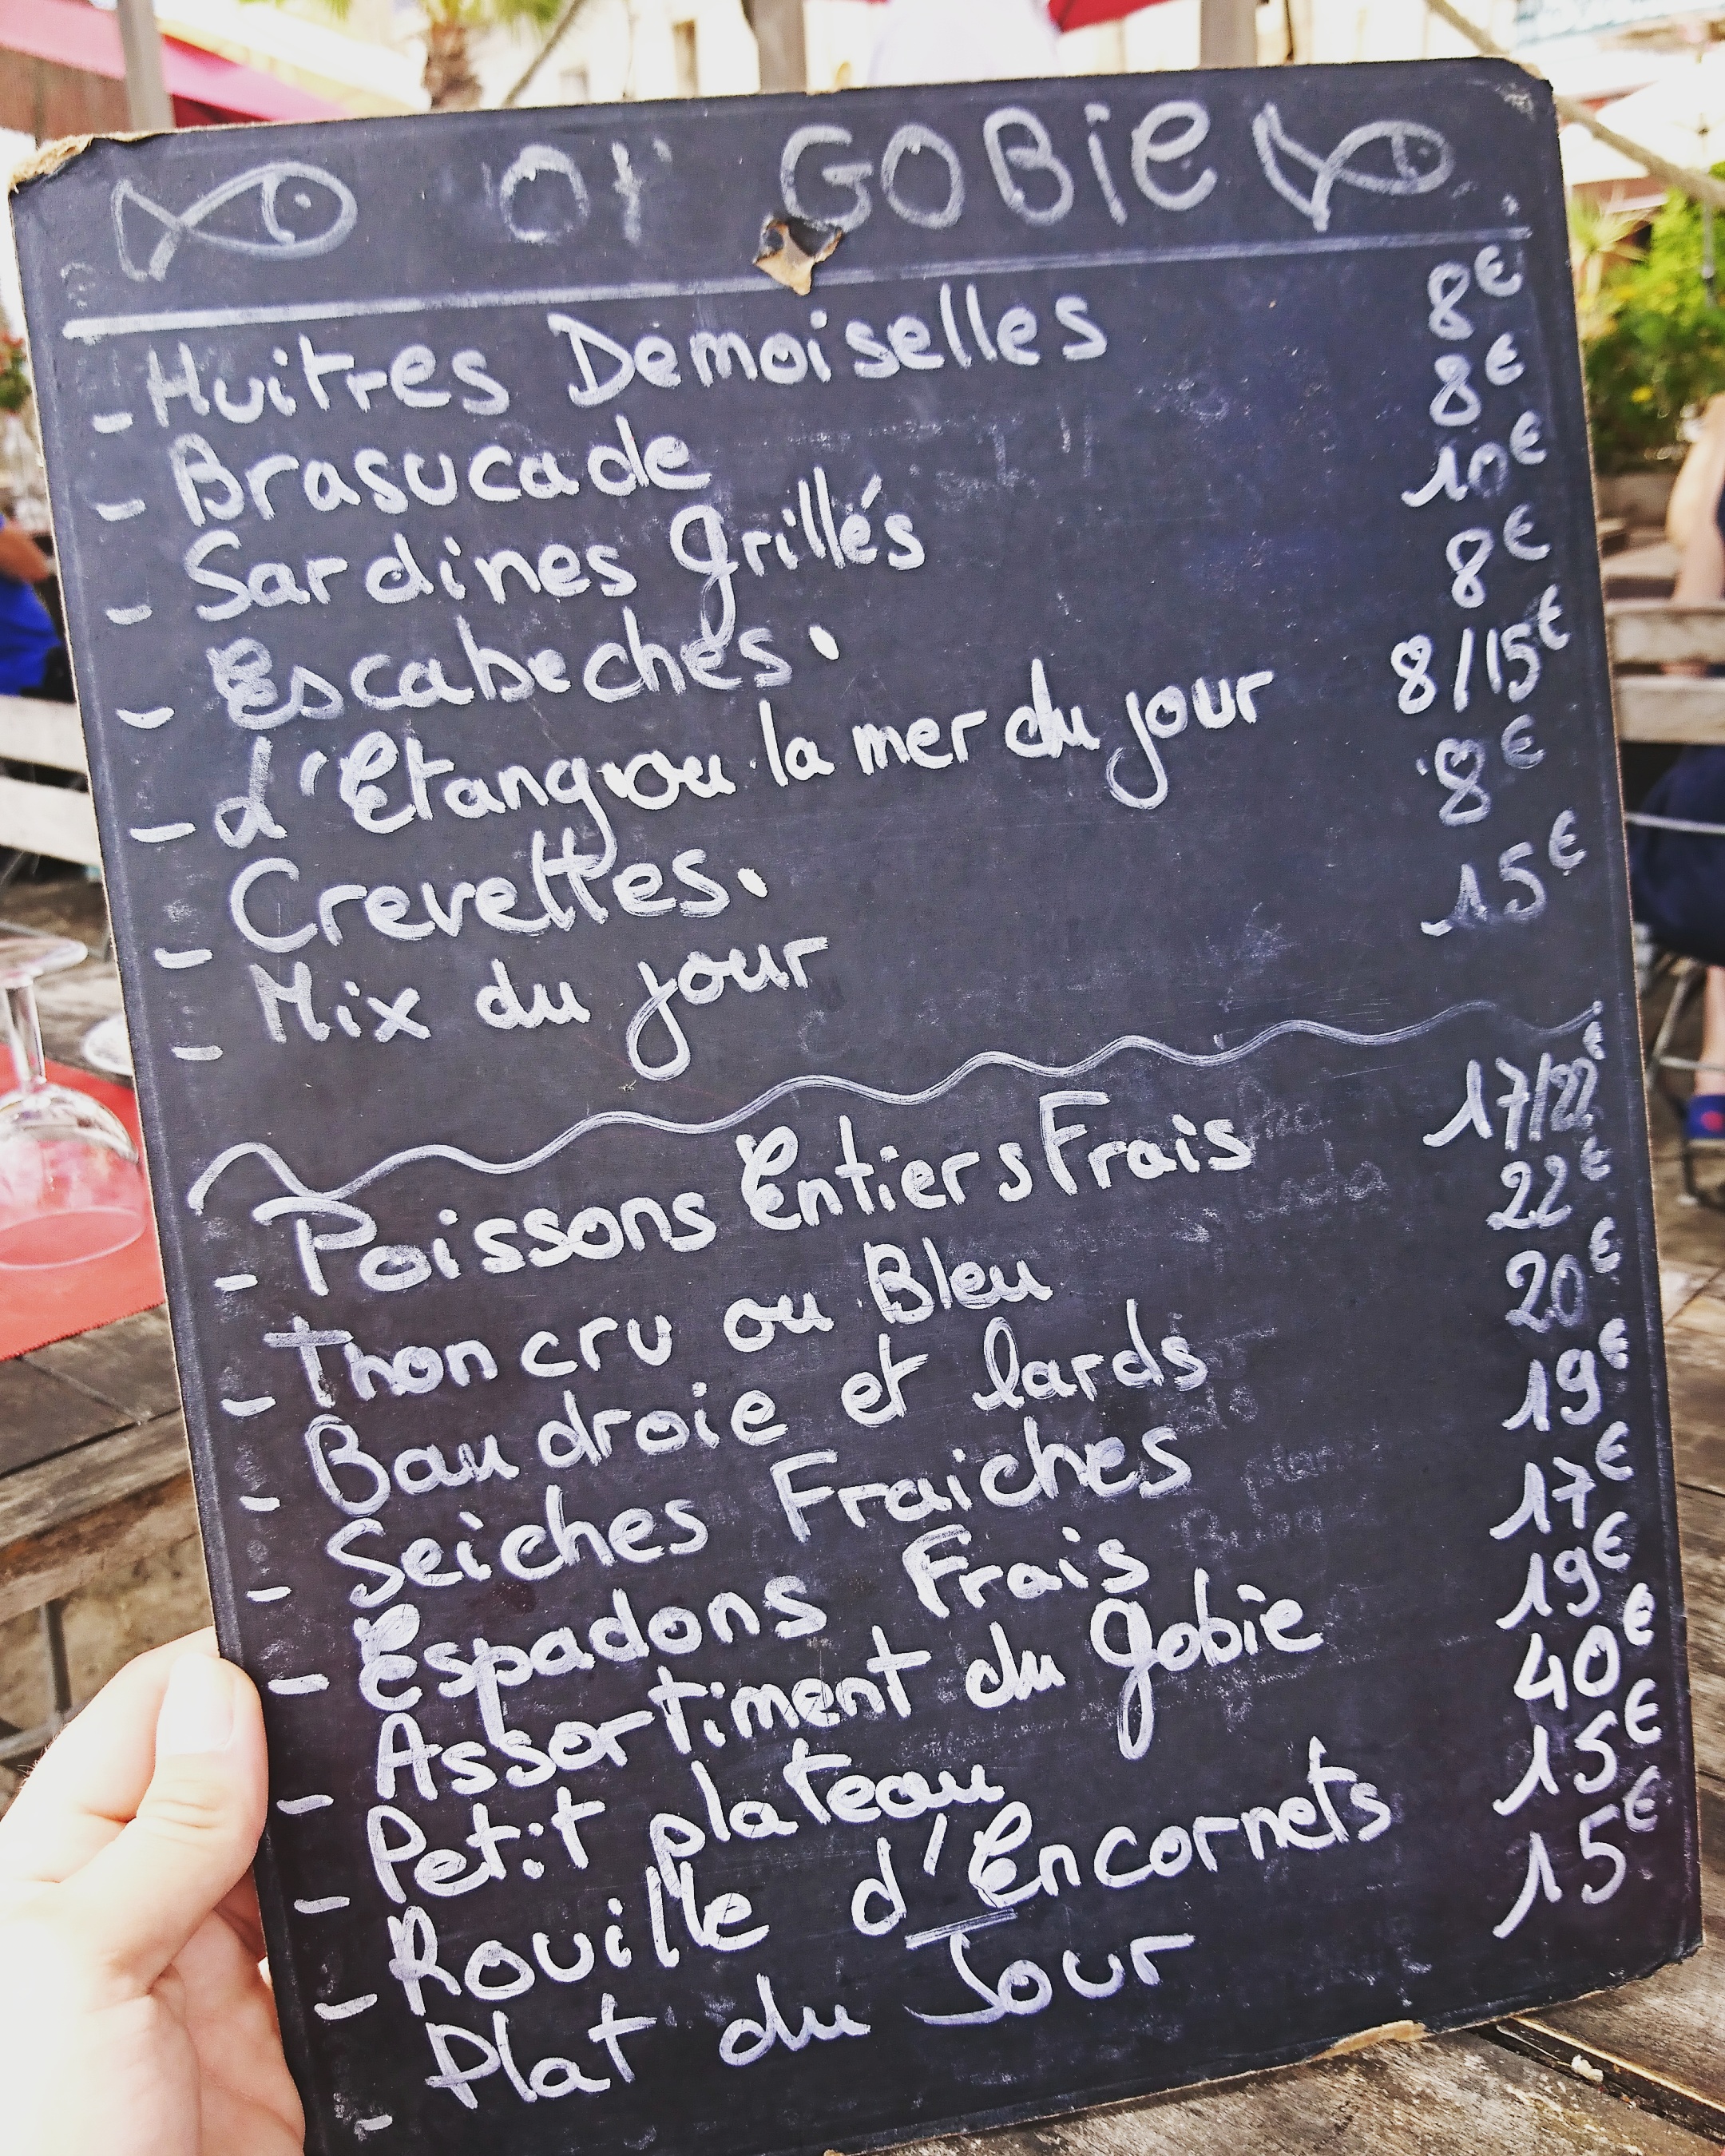 OT GOBIE
- Huitres Demoiselles 8€
- Brasucade 8€
- Sardines grillés 10€
- Escabeches. 8€
- L'Etang ou la mer du jour 8/15€
- Crevettes. 8€
- Mix du jour 15€
- Poissons Entiers Frais 17/22€
- Thon cru ou Bleu 22€
- Baudroie et lards 20€
- Seiches Fraiches 19€
- Espadons Frais 17€
- Assortiment du gobie 19€
- Petit plateau 40€
- Rouille d'Encornets 15€
- Plat du Jour 15€